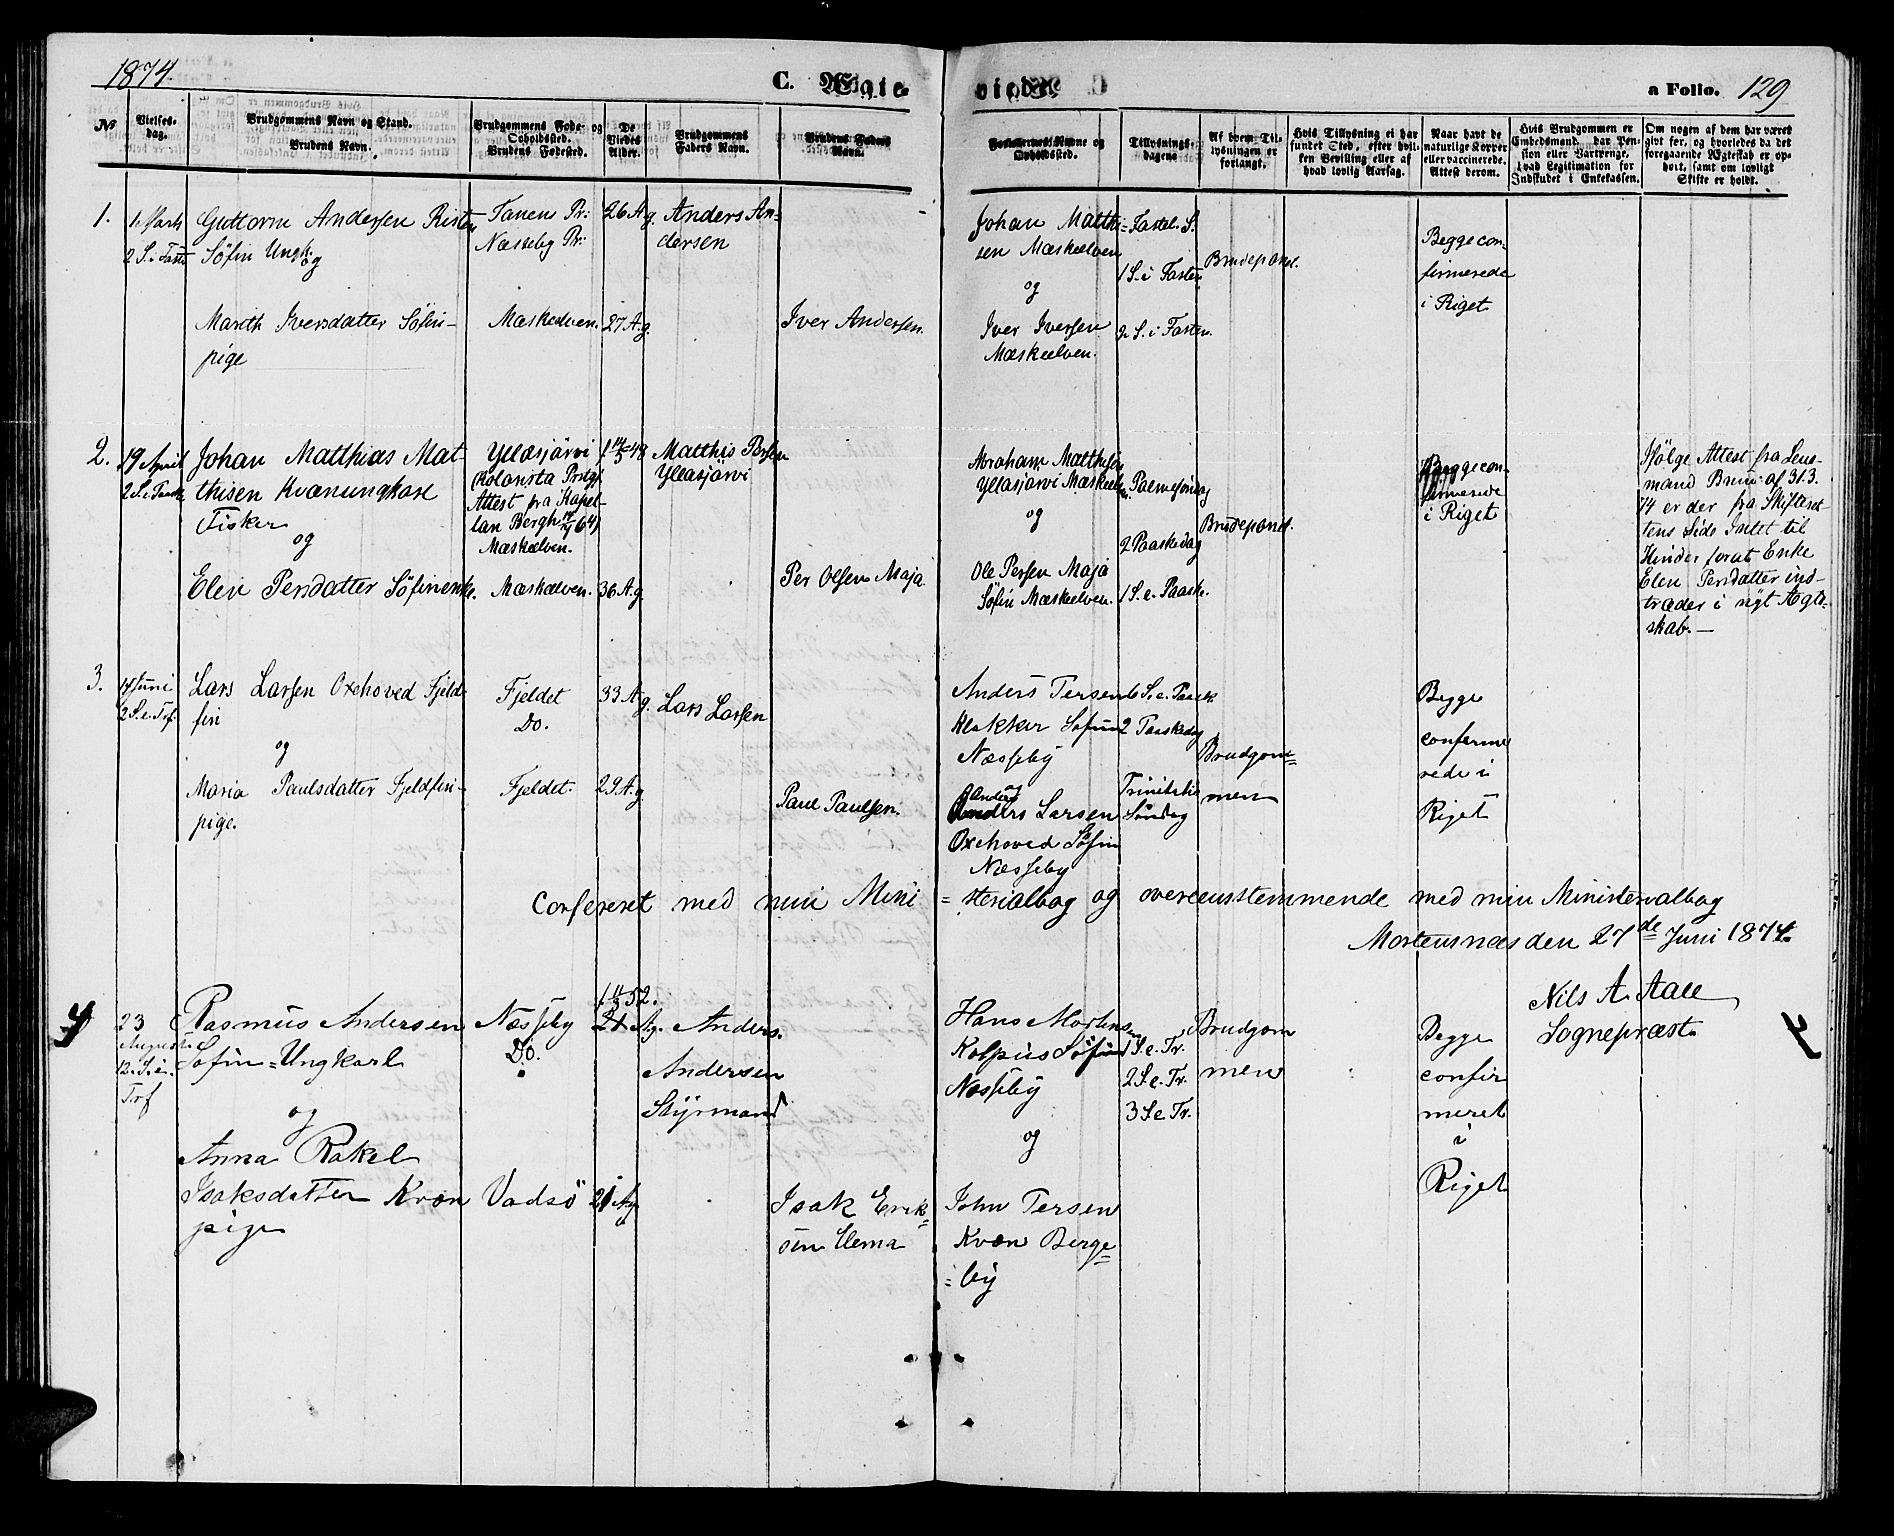 1874.
C. Ægte-
viede.
a Folio. 129
No
Vielses-
dag.
Brudgommens Navn og Stand.
Brudens Navn.
Brudgommens Føde- og
Opholdssted.
Brudens Fødested.
De
Viedes
Alder.
Brudgommens
Faders Navn.
Brudens Faders
Navn.
Forlovernes Navne og
Opholdssted.
Tillysnings-
dagene
Af hvem Til-
lysningen er
forlangt.
Hvis Tillysning ei har
fundet Sted, efter hvil-
ken Bevilling eller af
hvad lovlig Aarsag.
Naar havt de
naturlige Kopper
eller vaccinerede.
Attest derom.
Hvis Brudgommen er
Embedsmand, har Pen-
sion eller Vartpenge,
hvad Legitimation for
Indskudet i Enkekassen.
Om nogen af dem har været
gift før, og hvorledes da det
foregaaende Ægteskab er op-
hørt, samt om lovligt
Skifte er holdt.
1.
1 Marts
2 S. i Faste
Guttorm Andersen Risten
Söfin Ungk.
og
Mareth Iversdatter Söfin-
pige
Tanens Pr:
Næsseby Pr:
Mæskeelven.
26 A g.
27 A g.
Anders An-
dersen
Iver Andersen.
Johan Matthi-
sen Mæskeelven
og
Iver Iversen
Mæskeelven.
Fastel. S.
1 S. i Fasten
2 S. i Fasten.
Brudeparret.
Begge con-
firmerede
i Riget
2.
19 April
2 S. e. Paaske
Johan Matthias Mat-
thisen Kvænungkarl
Fisker
og
Elen Persdatter Söfinenke.
Yllasjärvi
Attest fra Kapel-
lan Bergh
Mæskeelven.
Mæskeelven.
36 A g.
Matthis Persen
Yllasjärvi
Per Olsen Maja
Abraham Matthisen
Yllasjarvi Mæskeelven
og
Ole Persen Maja
Söfin Mæskeelven.
Palmesöndag
2 Paaskedag
1 S. e. Paaske.
Brudeparret.
Begge con-
firmerede
i Riget
Ifölge Attest fra Lens-
mand Bruu af 31.3.
74 er der fra Skifteret-
tens Side Intet til
Hinder forat Enke
Elen Persdatter ind-
træder i nyt Ægte-
skab.—
3.
14 Juni
2 S. e. Trf.
Lars Larsen Oxehoved Fjeld-
fin
og
Maria Paulsdatter Fjeldfin-
pige.
Fjeldet
Do.
Fjeldet.
33 A g.
29 A. g.
Lars Larsen
Paul Paulsen.
Anders Persen
Klakker Söfin
Næsseby
og
Anders Larsen
Oxehoved Söfin
Næsseby
6 S. e. Paask.
2 Paaskedag
Trinitatis
Söndag
Brudgom-
men
Begge
confirme
rede i
Riget
Confereret med min Mini
=sterialbog og overeensstemmende med min Ministerialbog
Mortensnæs den 27de Juni 1874.
Nils A. Aall
Sognepræst.
4
23
August
12. S. e.
Trf
Rasmus Andersen
Söfin-Ungkarl
og
Anna Rakel
Isaksdatter Kvæn
pige
Næsseby
Do.
Vadsö
21 Ag.
21 Ag
Anders
Andersen
Styrmand
Isak Erik-
sen Uema
Hans Mortensen
Kolpus Söfin
Næsseby
og
John Persen
Kvæn Berge-
=by
1 S. e. Tr.
2 S. e. Tr.
3 S. e. Tr.
Brudgom
men
Begge
confir
meret
i
Riget
4